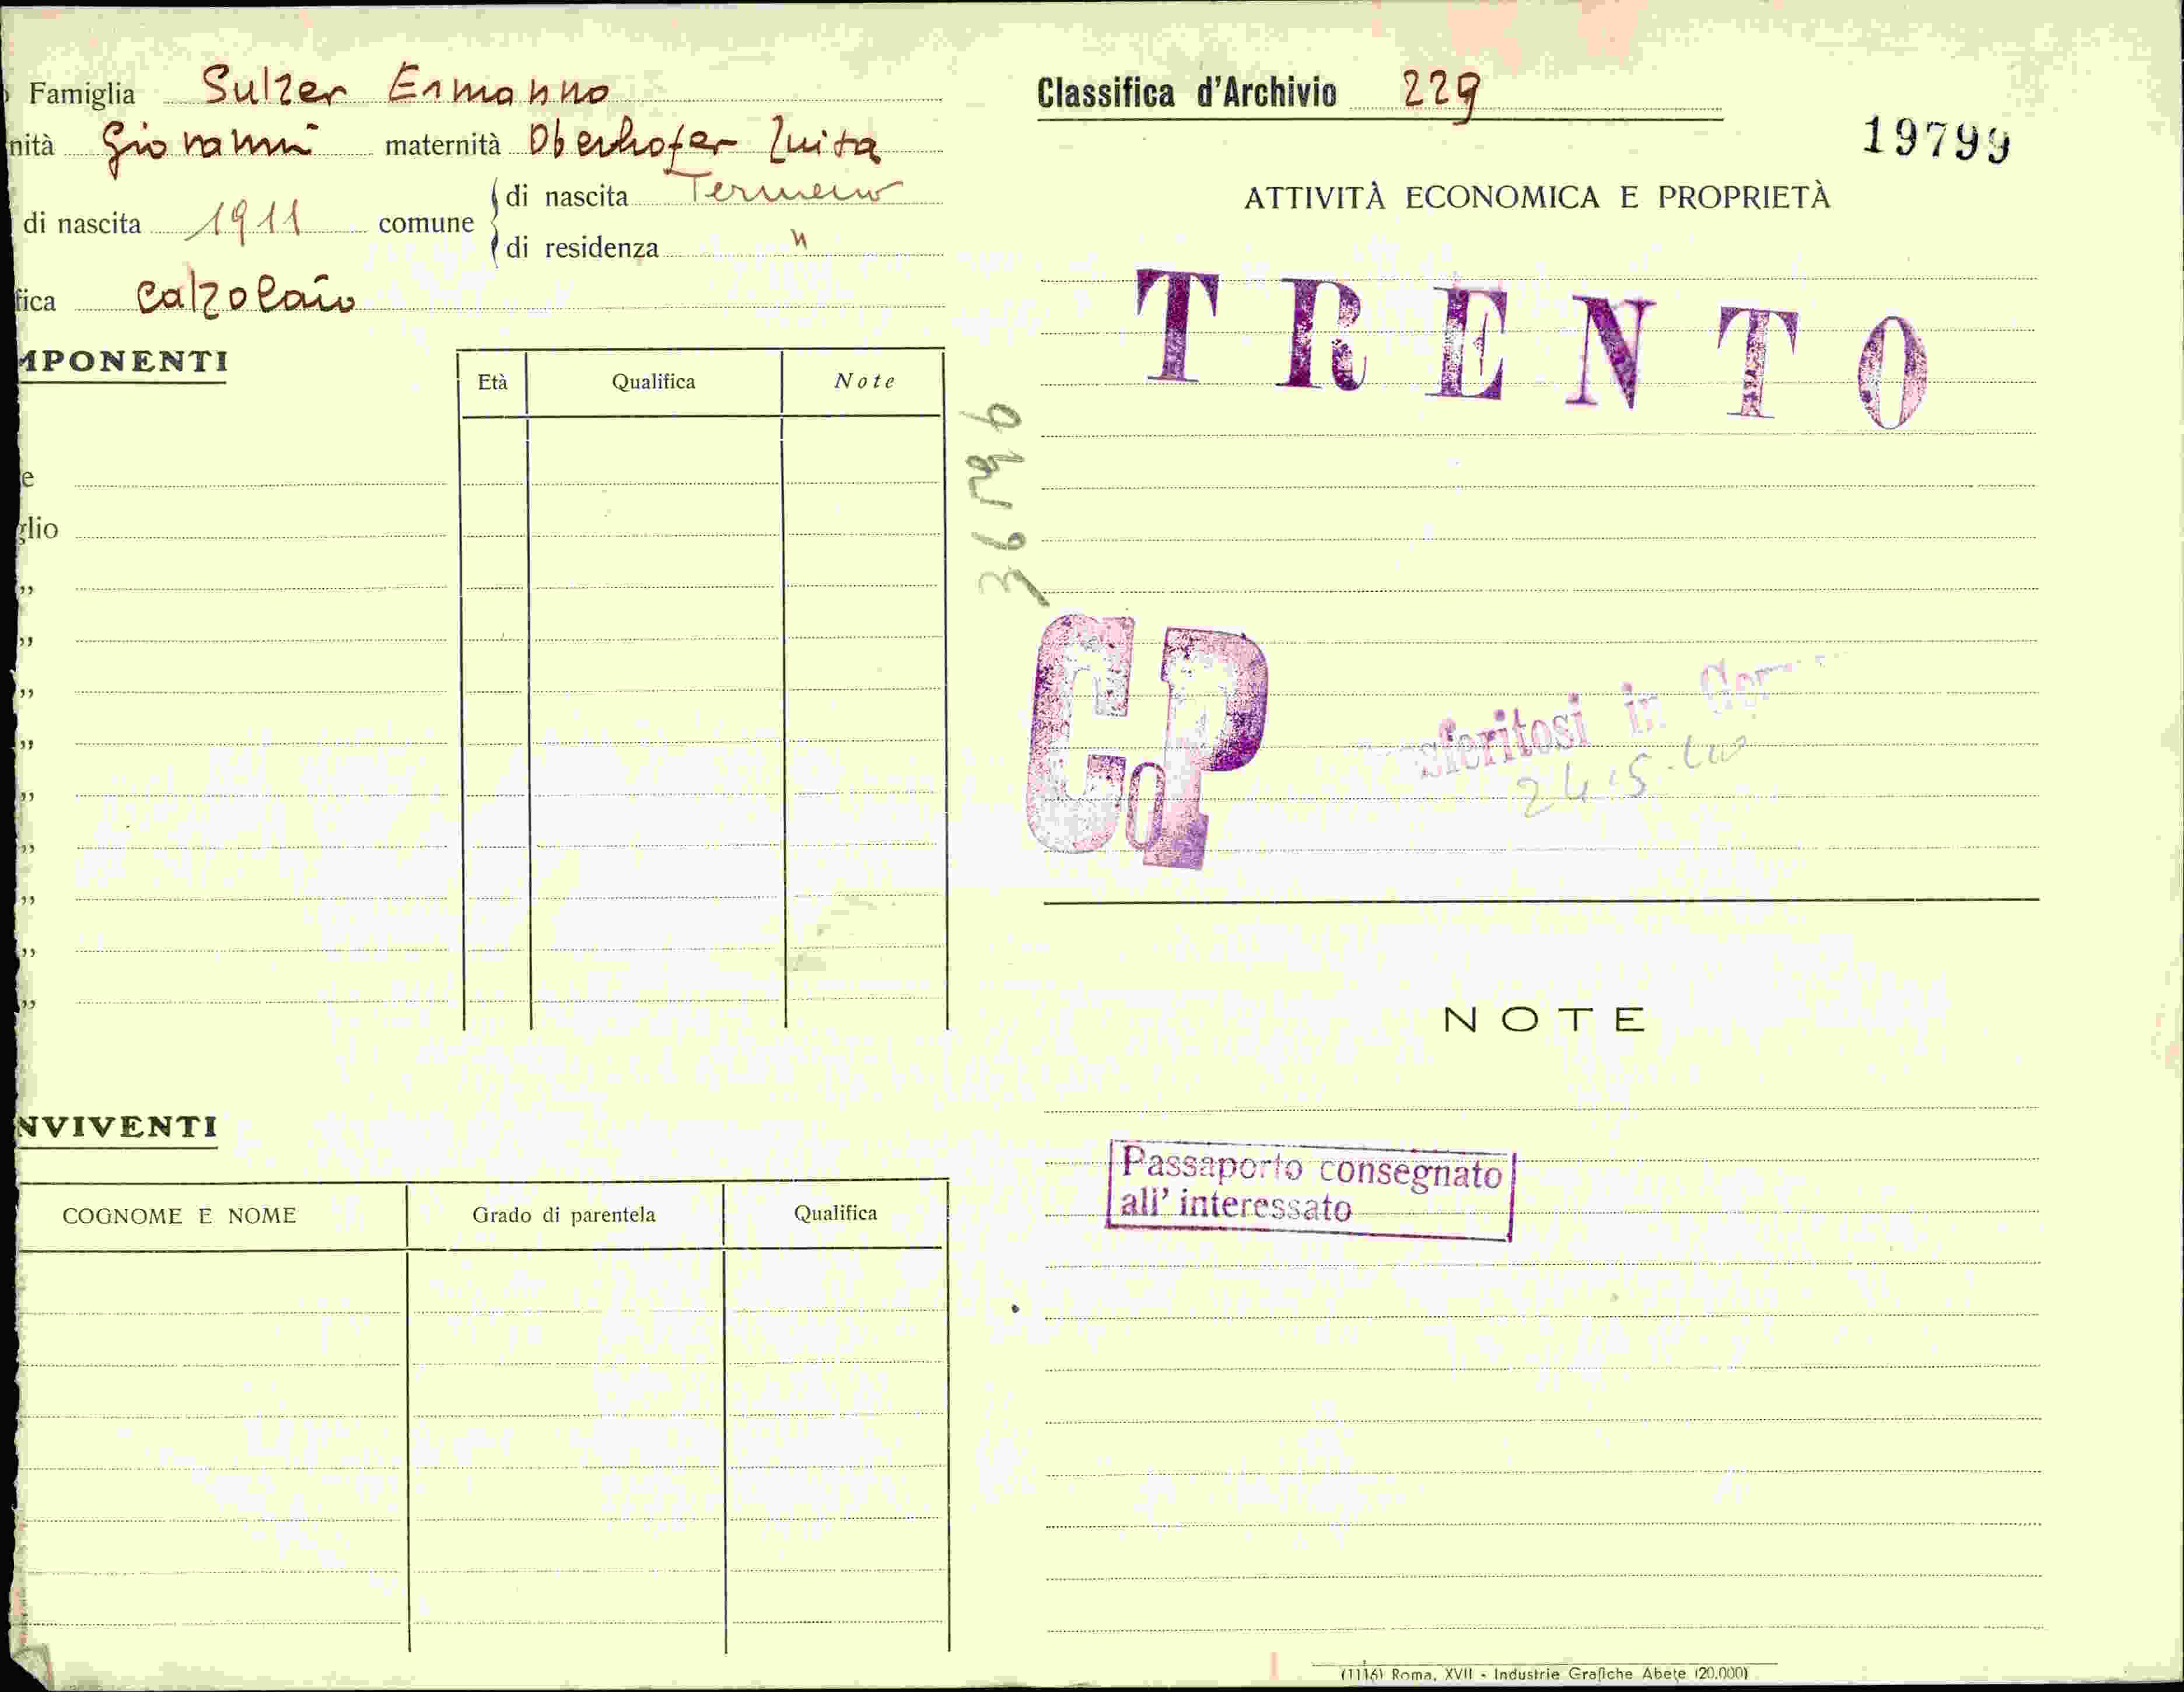 Famiglia Sulzer Ermanno
nità Giovanni maternità Oberhofer Luisa
di nascita 1911 comune di nascita Termeno
di residenza "
fica calzolaio
MPONENTI
Età Qualifica Note
e
glio
"
"
"
"
"
"
"
"
"
NVIVENTI
COGNOME E NOME Grado di parentela Qualifica
Classifica d'Archivio 229
19799
ATTIVITÀ ECONOMICA E PROPRIETÀ
TRENTO
CoP
sferitosi in Ger
24.5.40
NOTE
Passaporto consegnato
all' interessato
(1116) Roma, XVII - Industrie Grafiche Abete (20.000)